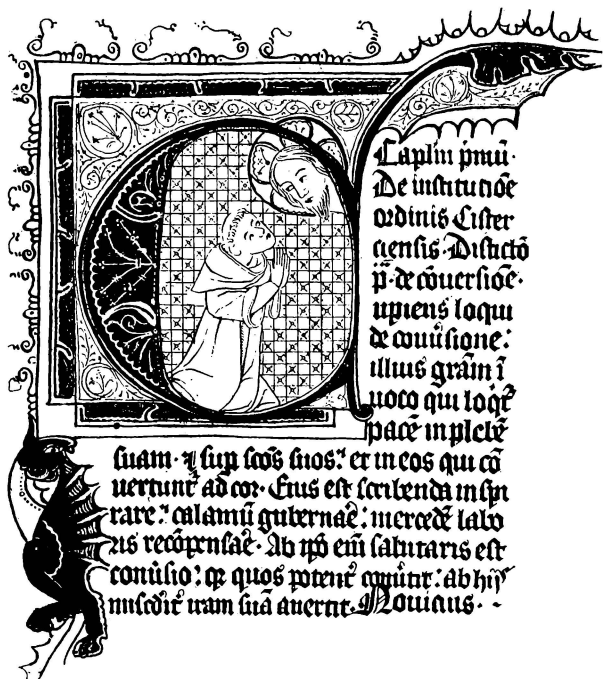 Caplm pmū·
De institutiōe
ordinis Cister
ciensis· Distictō
p̄· de cōuersiōe·
upiens loqui
de conūsione:
illius grām ī
uoco qui loqr̄
pacē in plebē
suam· ⁊ sup scōs suos: et in eos qui cō
uertunt̄ ad cor· Eius est scribenda inspi
rare: calamū gubernae: mercedē labo
ris recōpensae· Ab ip̄o em̄ salutaris est
conūsio: qz quos potent̄ conūtit: ab hijs
misc̄dit̄ iram suā auertit· Nouicius·